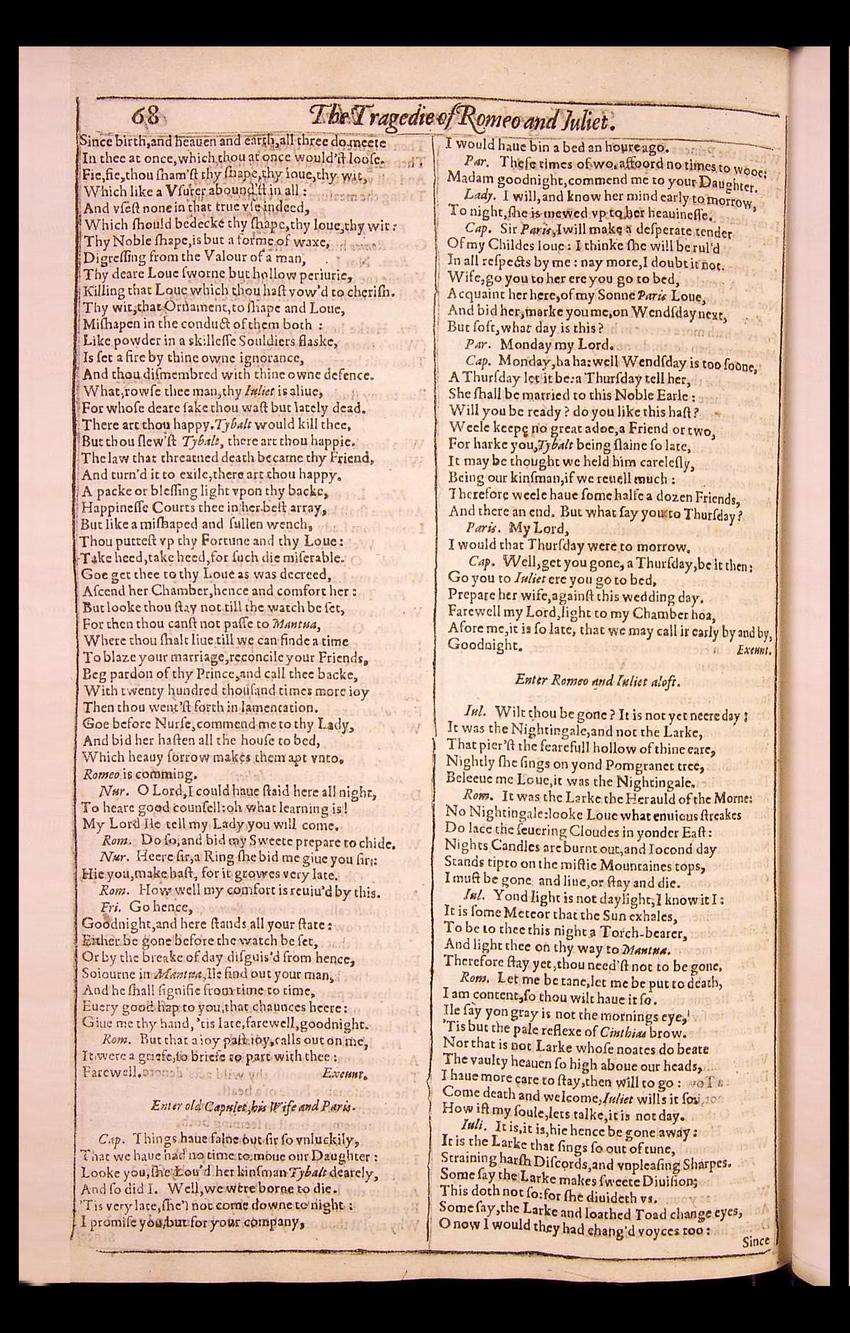 68
The Tragedie of Romeo and Iuliet.
Since birth,and heauen and earth,all three do meete
In thee at once,which thou at once would'ſt looſe.
Fie,fie,thou ſham'ſt thy ſhape,thy loue,thy wit,
Which like a Vſurer abound'ſt in all :
And vſeſt none in that true vſe indeed,
Which ſhould bedecke thy ſhape,thy loue,thy wit:
Thy Noble ſhape,is but a forme of waxe,
Digreſſing from the Valour of a man,
Thy deare Loue ſworne but hollow periurie,
Killing that Loue which thou haſt vow'd to cheriſh.
Thy wit,that Ornament,to ſhape and Loue,
Miſhapen in the conduct of them both :
Like powder in a skilleſſe Souldiers flaske,
Is ſet a fire by thine owne ignorance,
And thou diſmembred with thine owne defence.
What,rowſe thee man,thy Iuliet is aliue,
For whoſe deare ſake thou waſt but lately dead.
There art thou happy.Tybalt would kill thee,
But thou ſlew'ſt Tybalt, there art thou happie.
The law that threatned death became thy Friend,
And turn'd it to exile,there art thou happy.
A packe or bleſſing light vpon thy backe,
Happineſſe Courts thee in her beſt array,
But like a miſhaped and ſullen wench,
Thou putteſt vp thy Fortune and thy Loue:
Take heed,take heed,for ſuch die miſerable.
Goe get thee to thy Loue as was decreed,
Aſcend her Chamber,hence and comfort her :
But looke thou ſtay not till the watch be ſet,
For then thou canſt not paſſe to Mantua,
Where thou ſhalt liue till we can finde a time
To blaze your marriage,reconcile your Friends,
Beg pardon of thy Prince,and call thee backe,
With twenty hundred thouſand times more ioy
Then thou went'ſt forth in lamentation.
Goe before Nurſe,commend me to thy Lady,
And bid her haſten all the houſe to bed,
Which heauy ſorrow makes them apt vnto.
Romeo is comming.
Nur. O Lord,I could haue ſtaid here all night,
To heare good counſell:oh what learning is!
My Lord Ile tell my Lady you will come.
Rom. Do ſo,and bid my Sweete prepare to chide.
Nur. Heere ſir,a Ring ſhe bid me giue you ſir:
Hie you,make haſt, for it growes very late.
Rom. How well my comfort is reuiu'd by this.
Fri. Go hence,
Goodnight,and here ſtands all your ſtate :
Either be gone before the watch be ſet,
Or by the breake of day diſguis'd from hence,
Soiourne in Mantua,Ile find out your man,
And he ſhall ſignifie from time to time,
Euery good hap to you,that chaunces heere:
Giue me thy hand, 'tis late,farewell,goodnight.
Rom. But that a ioy paſt ioy,calls out on me,
It were a griefe,ſo briefe to part with thee :
Farewell. Exeunt.
Enter old Capulet,his Wife and Paris.
Cap. Things haue falne out ſir ſo vnluckily,
That we haue had no time to moue our Daughter :
Looke you,ſhe Lou'd her kinſman Tybalt dearely,
And ſo did I. Well,we were borne to die.
'Tis very late,ſhe'l not come downe to night :
I promiſe you,but for your company,
I would haue bin a bed an houre ago.
Par. Theſe times of wo,affoord no times to wooe:
Madam goodnight,commend me to your Daughter.
Lady. I will,and know her mind early to morrow,
To night,ſhe is mewed vp to her heauineſſe.
Cap. Sir Paris,I will make a deſperate tender
Of my Childes loue : I thinke ſhe will be rul'd
In all reſpects by me : nay more,I doubt it not.
Wife,go you to her ere you go to bed,
Acquaint her here,of my Sonne Paris Loue,
And bid her,marke you me,on Wendſday next,
But ſoft,what day is this?
Par. Monday my Lord.
Cap. Monday,ha ha:well Wendſday is too ſoone,
A Thurſday let it be:a Thurſday tell her,
She ſhall be married to this Noble Earle :
Will you be ready ? do you like this haſt ?
Weele keepe no great adoe,a Friend or two,
For harke you,Tybalt being ſlaine ſo late,
It may be thought we held him careleſly,
Being our kinſman,if we reuell much :
Therefore weele haue ſome halfe a dozen Friends,
And there an end. But what ſay you to Thurſday ?
Paris. My Lord,
I would that Thurſday were to morrow.
Cap. Well,get you gone, a Thurſday,be it then:
Go you to Iuliet ere you go to bed,
Prepare her wife,againſt this wedding day.
Farewell my Lord,light to my Chamber hoa,
Afore me,it is ſo late, that we may call ir early by and by,
Goodnight. Exeunt.
Enter Romeo and Iuliet aloft.
Iul. Wilt thou be gone ? It is not yet neere day :
It was the Nightingale,and not the Larke,
That pier'ſt the fearefull hollow of thine eare,
Nightly ſhe ſings on yond Pomgranet tree,
Beleeue me Loue,it was the Nightingale.
Rom. It was the Larke the Herauld of the Morne:
No Nightingale:looke Loue what enuious ſtreakes
Do lace the ſeuering Cloudes in yonder Eaſt :
Nights Candles are burnt out,and Iocond day
Stands tipto on the miſtie Mountaines tops,
I muſt be gone and liue,or ſtay and die.
Iul. Yond light is not daylight,I know it I :
It is ſome Meteor that the Sun exhales,
To be to thee this night a Torch-bearer,
And light thee on thy way to Mantua.
Therefore ſtay yet,thou need'ſt not to be gone,
Rom. Let me be tane,let me be put to death,
I am content,ſo thou wilt haue it ſo.
Ile ſay yon gray is not the mornings eye,
'Tis but the pale reflexe of Cinthias brow.
Nor that is not Larke whoſe noates do beate
The vaulty heauen ſo high aboue our heads,
I haue more care to ſtay,then will to go :
Come death and welcome,Iuliet wills it ſo.
How iſt my ſoule,lets talke,it is not day.
Iuli. It is,it is,hie hence be gone away :
It is the Larke that ſings ſo out of tune,
Straining harſh Diſcords,and vnpleaſing Sharpes.
Some ſay the Larke makes ſweete Diuiſion;
This doth not ſo:for ſhe diuideth vs.
Some ſay,the Larke and loathed Toad change eyes,
O now I would they had chang'd voyces too :
Since